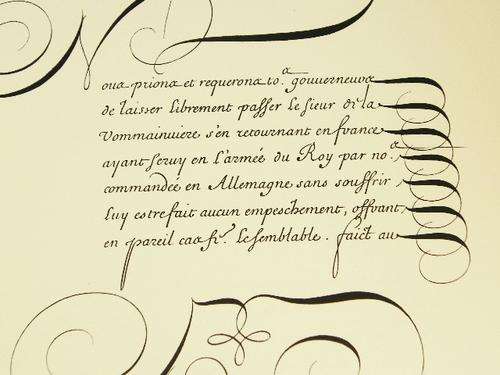 ous prions et requerons to.s gouuerneurs
de laisser librement passer le sieur de la
Vommainuiere s'en retournant en france
ayant seruy en l'armée du Roy par no.s
commandée en Allemagne sans souffrir
luy estre fait aucun empeschement, offrant
en pareil cas fe.r le semblable. faict au